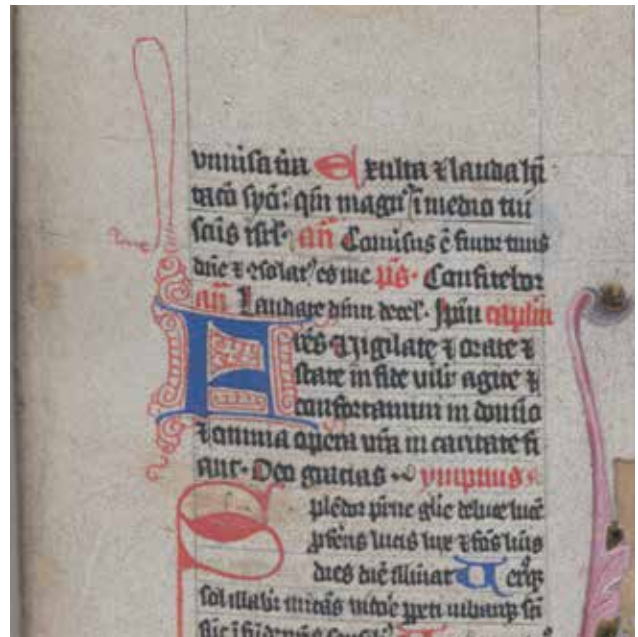 vniu̇sa t̄ra Exulta ⁊ lauda h̄i
tacō syō: qm̄ magn⁹ ī medio tui
scūs isrl̄. an̄ Conu̇sus ē furor tuus
dn̄e ⁊ ɔsolat⁹ es me ps̄. Confitebor
an̄ Laudate dn̄m decel. Ipm̄ capl̄m
Fr̄es Uigilate ⁊ orate ⁊
state in fide vilr̄ agite ⁊
confortamini in domīo
⁊ omnia opera vr̄a in caritate fi
ant. Deo gracias ympnus
Splēdor pr̄ne glīe de luce lucē
ꝓfēns lucis lux ⁊ fōs lūis
dies diē illuīnās Uerqꝫ
sol illabe micās nitore ꝑpeti iubarqꝫ sci